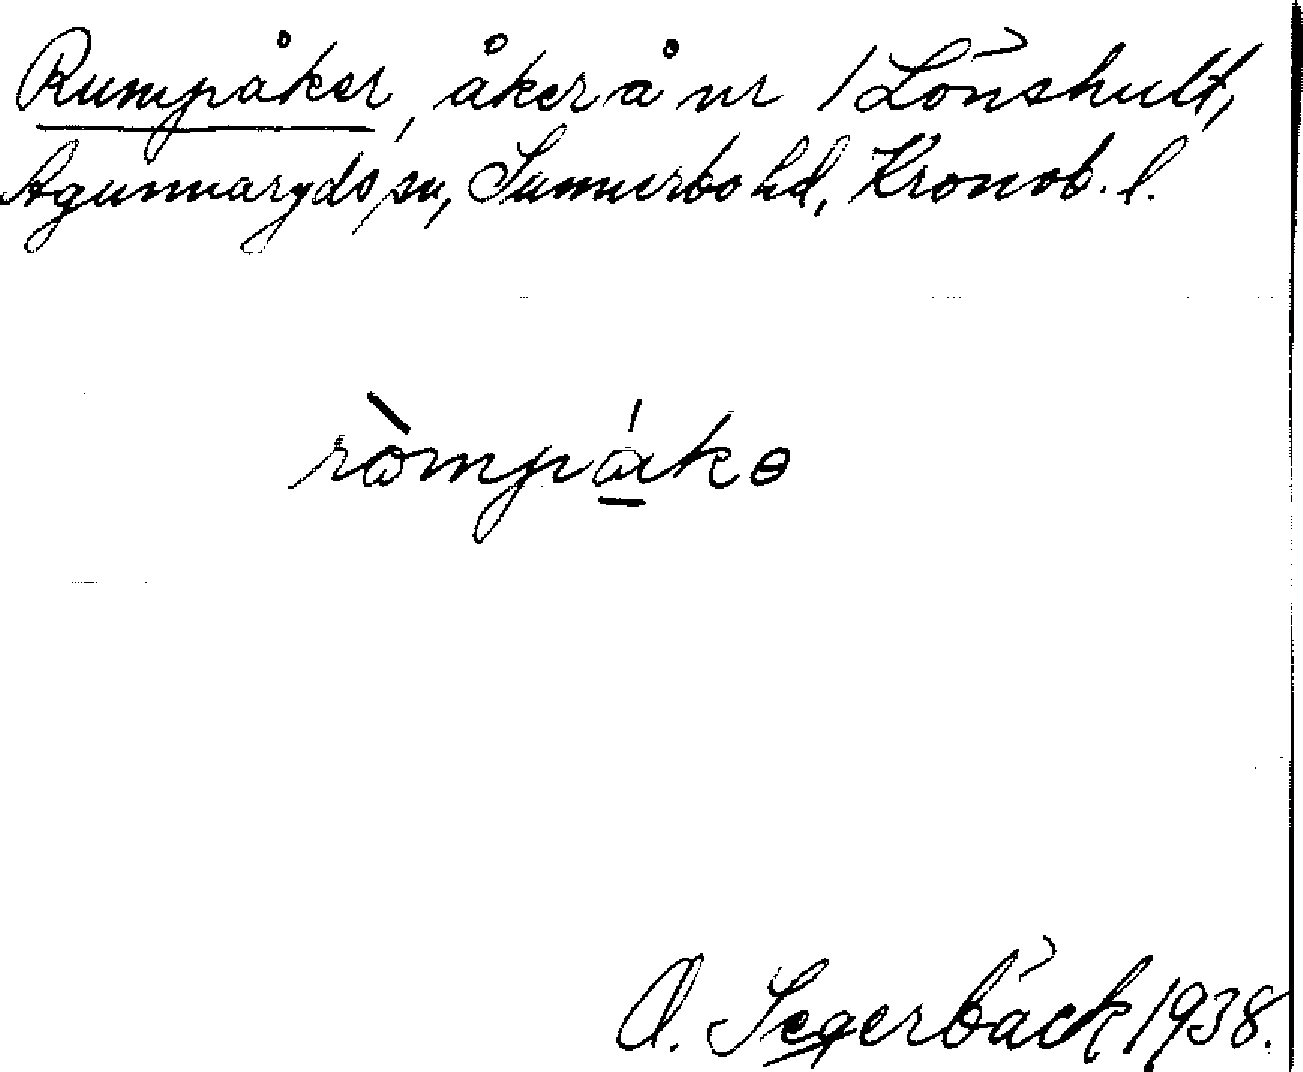 Rumpåker, åker å nr 1 Lönshult,
Agunnaryds sn, Sunnerbo hd, Kronob. l.
ròmpákɵ
O. Segerbäck 1938.